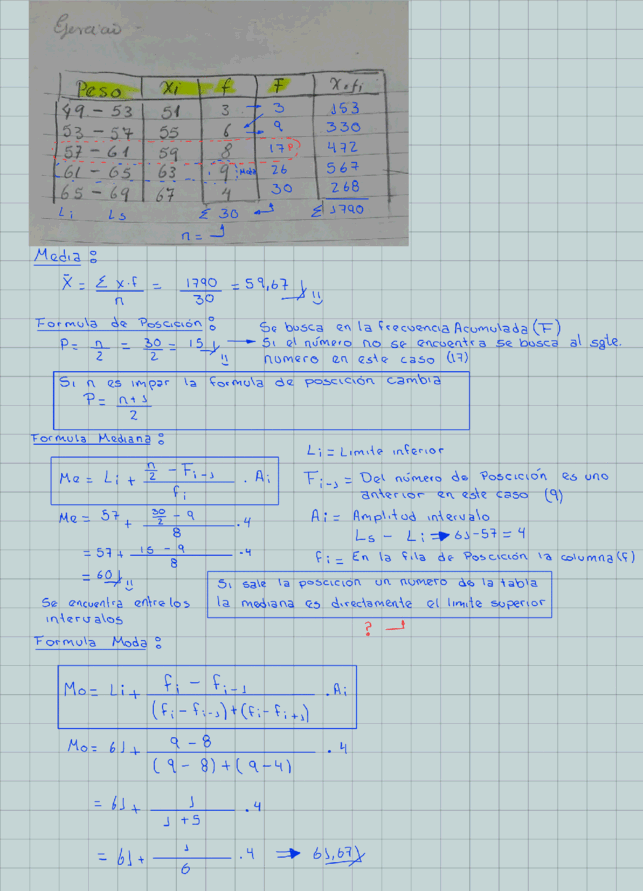 Ejercicio
Peso Xi f F X.fi
49 - 53 51 3 → 3 153
53 - 57 55 6 → 9 330
57 - 61 59 8 17 P 472
61 - 65 63 9 Moda 26 567
65 - 69 67 4 30 268
Li Ls Σ 30 Σ 1790
n =
Media:
X̄ = Σ x.f / n = 1790 / 30 = 59,67
Formula de Poscición:
P = n / 2 = 30 / 2 = 15 →
Se busca en la frecuencia Acumulada (F)
Si el número no se encuentra se busca al sgte.
numero en este caso (17)
Si n es impar la formula de poscición cambia
P = n+1 / 2
Formula Mediana:
Me = Li + (n/2 - Fi-1) / fi . Ai
Me = 57 + (30/2 - 9) / 8 . 4
= 57 + (15 - 9) / 8 . 4
= 60
Se encuentra entre los
intervalos
Li = Limite inferior
Fi-1 = Del número de Poscición es uno
anterior en este caso (9)
Ai = Amplitud intervalo
Ls - Li ➡ 61-57 = 4
fi = En la fila de Poscición la columna (f)
Si sale la poscición un número de la tabla
la mediana es directamente el limite superior
?
Formula Moda:
Mo = Li + (fi - fi-1) / ((fi - fi-1) + (fi - fi+1)) . Ai
Mo = 61 + (9 - 8) / ((9 - 8) + (9 - 4)) . 4
= 61 + 1 / (1 + 5) . 4
= 61 + 1 / 6 . 4 ⇒ 61,67